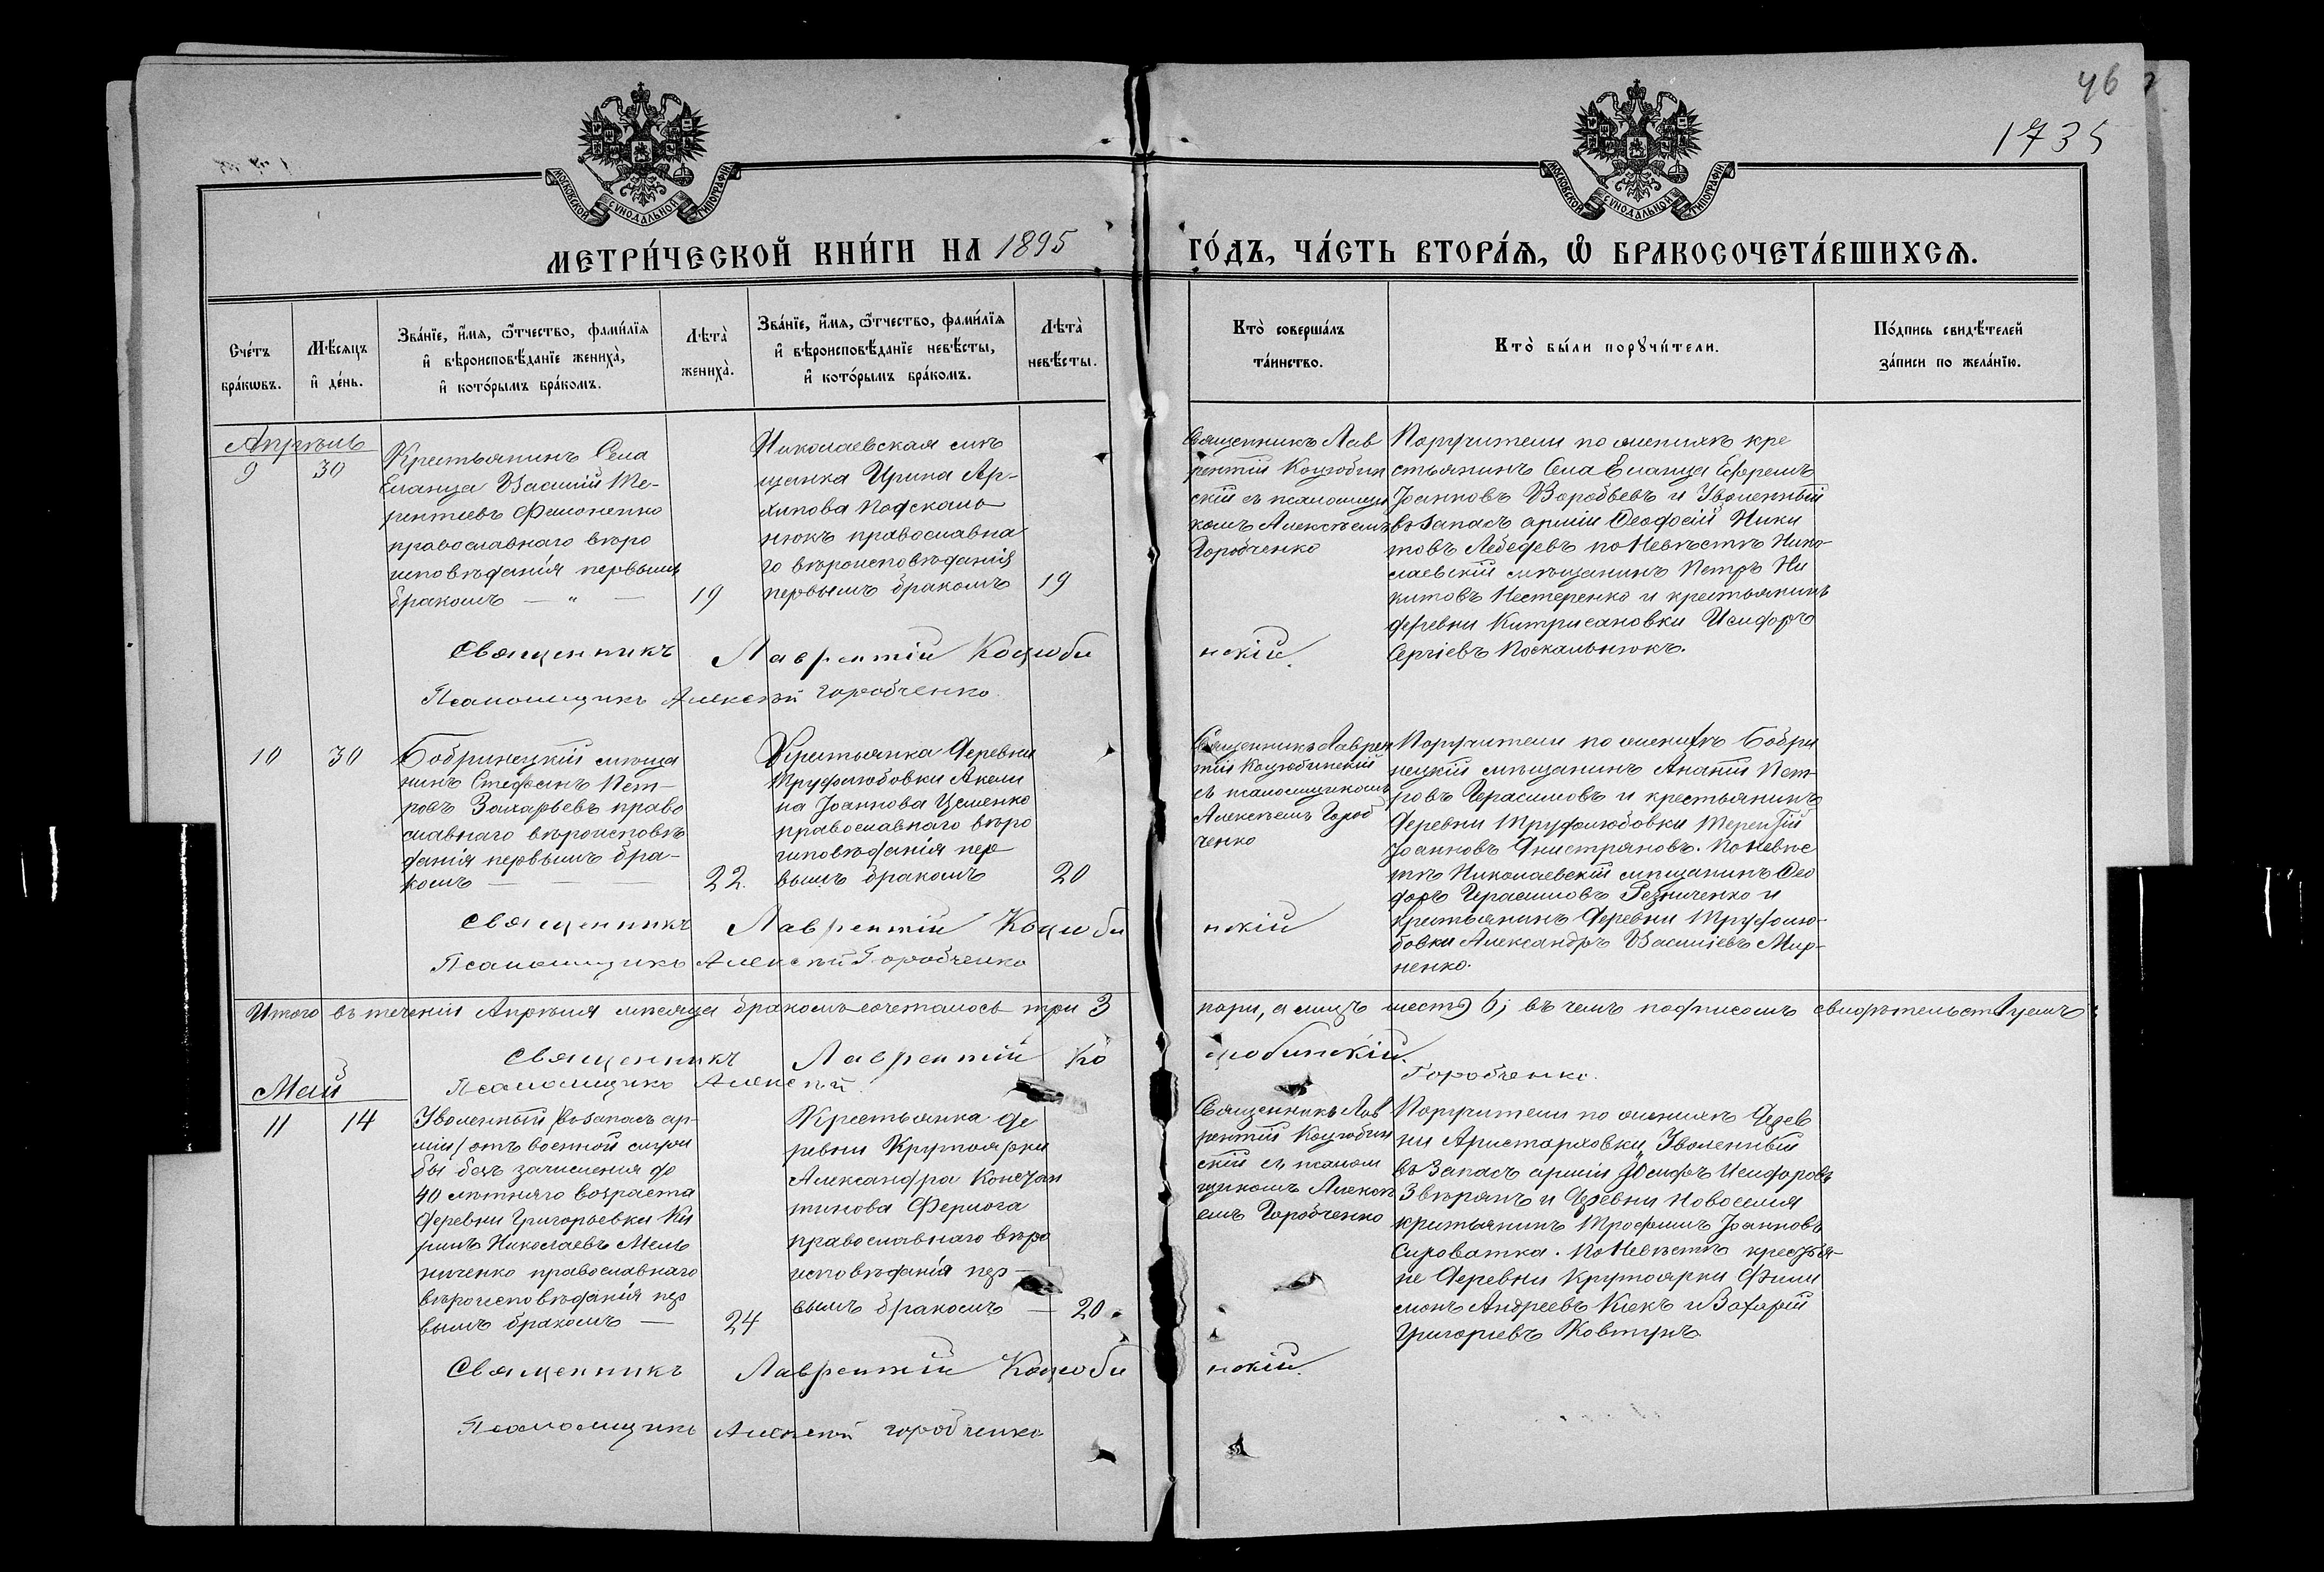 46
1735
МОСКОВСКОЙ СѴНОДАЛЬНОЙ ТИПОГРАФІИ
МОСКОВСКОЙ СѴНОДАЛЬНОЙ ТИПОГРАФІИ
МЕТРИ́ЧЕСКОЙ КНИ́ГИ НА 1895
ГО́ДЪ, ЧА́СТЬ ВТОРА́Ѧ, Ѽ БРАКОСОЧЕТА́ВШИХСѦ.
Сче́тъ
бра́кѡвъ.
Мѣ́сяцъ
и҆ де́нь.
Зва́нїе, и҆́мѧ, ѻ҆́тчество, фами́лїѧ
и҆ вѣроисповѣ́данїе жениха̀,
и҆ кото́рымъ бра́комъ.
Лѣта̀
жениха̀.
Зва́нїе, и҆́мѧ, ѻ҆́тчество, фами́лїѧ
и҆ вѣроисповѣ́данїе невѣ́сты,
и҆ кото́рымъ бра́комъ.
Лѣта̀
невѣ́сты.
Кто̀ соверша́лъ
та́инство.
Кто̀ бы́ли порꙋчи́тели.
По́дпись свидѣ́телей
за́писи по жела́нїю.
Апрѣль
9
30
Крестьянинъ Села
Еланца Василій Те-
рентіевъ Филоненко
православнаго вѣро
исповѣданія первымъ
бракомъ — „ —
19
Николаевская мѣ
щанка Ирина Ар-
хипова Подскаль
нюкъ православна
го вѣроисповѣданія
первымъ бракомъ
19
Священникъ Лав
рентій Коцюбин
скій съ псаломщи
комъ Алексѣемъ
Горобченко
Поручители по женихѣ кре
стьянинъ Села Еланца Ефремъ
Іоанновъ Воробьевъ и Уволенный
въ запасъ арміи Ѳеодосій Ники
товъ Лебедевъ по Невѣстѣ Нико-
лаевскій мѣщанинъ Петръ Ни
китовъ Нестеренко и крестьянинъ
деревни Китрисановки Исидоръ
Сергіевъ Поскальнюкъ.
Священникъ Лаврентій Коцюби
нскій.
Псаломщикъ Алексѣй Горобченко
10
30
Бобринецкій мѣща
нинъ Стефанъ Пет-
ровъ Захарьевъ право
славнаго вѣроисповѣ
данія первымъ бра-
комъ — — —
22.
Крестьянка Деревни
Труфолюбовки Акели
на Іоаннова Цеменко
православнаго вѣро
исповѣданія пер
вымъ бракомъ
20
Священникъ Лаврен
тій Коцюбинскій
съ псаломщикомъ
Алексѣемъ Гороб
ченко
Поручители по женихѣ Бобри
нецкій мѣщанинъ Ананій Пет-
ровъ Герасимовъ и крестьянинъ
Деревни Труфолюбовки Терентій
Іоанновъ Днистряновъ. По Невѣс
тѣ Николаевскій мѣщанинъ Ѳео
доръ Герасимовъ Резниченко и
крестьянинъ Деревни Труфолю-
бовки Александръ Василіевъ Мир-
ненко.
Священникъ Лаврентій Коцюби
нскій
Псаломщикъ Алексѣй Горобченко
Итого въ теченіи Апрѣля мѣсяца бракомъ сочеталось три 3
пары, а лицъ шесть 6; въ чемъ подписомъ свидѣтельствуемъ:
Священникъ Лаврентій Ко
цюбинскій.
Псаломщикъ Алексѣй
Горобченко.
Май
11
14
Уволенный въ запасъ ар-
міи/ отъ военной служ
бы безъ зачисленія до
40 лѣтняго возраста
Деревни Григорьевки Ки
рилъ Николаевъ Мель
ниченко православнаго
вѣроисповѣданія пер
вымъ бракомъ —
24
Крестьянка де
ревни Крутоярки
Александра Констан
тинова Ферлога
православнаго вѣро
исповѣданія пер —
вымъ бракомъ —
20.
Священникъ Лав
рентій Коцюбин
скій съ псалом
щикомъ Алексѣ
емъ Горобченко
Поручители по женихѣ Дерев
ни Аристарховки, Уволенный
въ Запасъ арміи Іосифъ Исидоровъ
Звѣрянъ и Деревни Новоселія
крестьянинъ Трофимъ Іоанновъ
Сироватка. По Невѣстѣ крестья-
не Деревни Крутоярки Фили
монъ Андреевъ Клекъ и Захарій
Григорьевъ Ковтунъ.
Священникъ Лаврентій Коцюби
нскій.
Псаломщикъ Алексѣй Горобченко